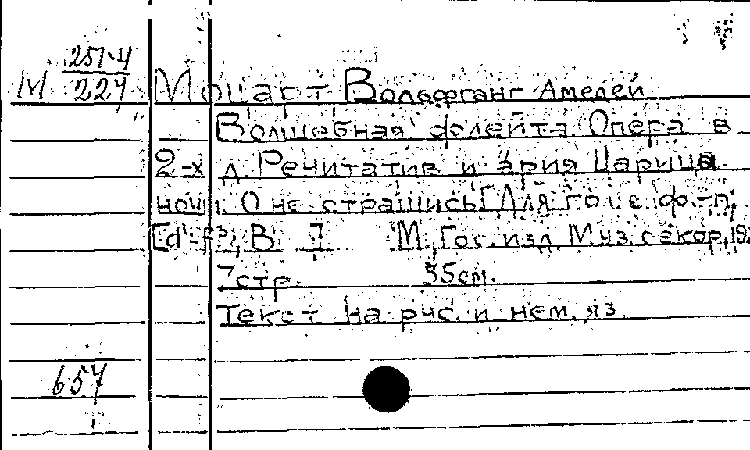 М 251-4/227 Моцарт Вольфганг Амедей
Волшебная флейта Опера в
2-х д Речитатив и ария Царицы
ночи. О не страшись! Для гол. с ф.-п.
В М. Гос. изд. Муз. сектор, 192
7 стр. 35 см.
Текст на рус. и нем. яз.
657